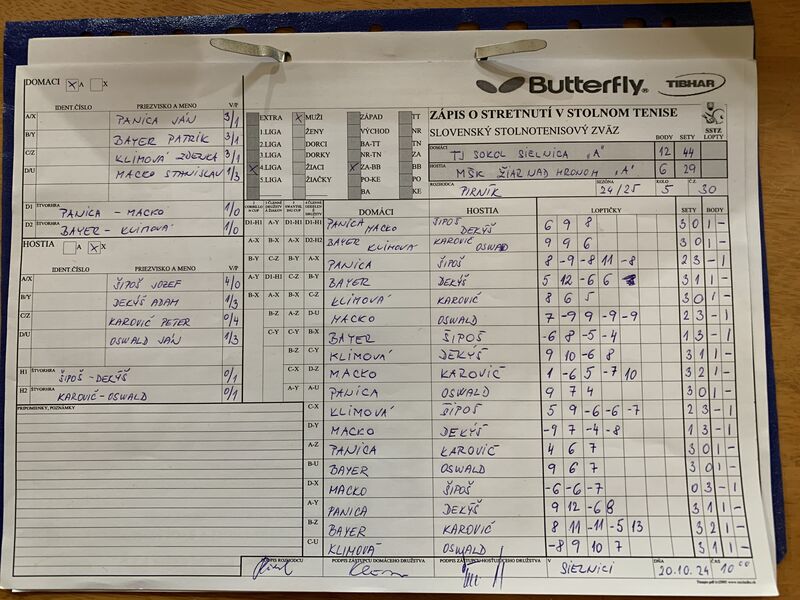 DOMACI X A X
Butterfly® TIBHAR
IDENT.ČÍSLO PRIEZVISKO A MENO V/P
A/X PANICA JÁN 3/1
B/Y BAYER PATRIK 3/1
C/Z KLIMOVÁ ZDENKA 3/1
D/U MACKO STANISLAV 1/3
D1 ŠTVORHRA PANICA - MACKO 1/0
D2 ŠTVORHRA BAYER - KLIMOVÁ 1/0
EXTRA X MUŽI ZÁPAD TT
1.LIGA ŽENY VÝCHOD NR
2.LIGA DORCI BA-TT TN
3.LIGA DORKY NR-TN ZA
X 4.LIGA ŽIACI X ZA-BB BB
5.LIGA ŽIAČKY PO-KE PO
BA KE
ZÁPIS O STRETNUTÍ V STOLNOM TENISE
SLOVENSKÝ STOLNOTENISOVÝ ZVÄZ SSTZ
BODY SETY LOPTY
DOMÁCI TJ SOKOL SIELNICA "A" 12 44
HOSTIA MŠK ŽIAR NAD HRONOM "A" 6 29
ROZHODCA PIRNÍK SEZÓNA 24/25 KOLO 5 Č.Z. 30
HOSTIA A X X
IDENT.ČÍSLO PRIEZVISKO A MENO V/P
A/X ŠIPOŠ JOZEF 4/0
B/Y DEKÝŠ ADAM 1/3
C/Z KAROVIČ PETER 0/4
D/U OSWALD JÁN 1/3
H1 ŠTVORHRA ŠIPOŠ - DEKÝŠ 0/1
H2 ŠTVORHRA KAROVIČ - OSWALD 0/1
PRIPOMIENKY, POZNÁMKY
DOMÁCI HOSTIA LOPTIČKY SETY BODY
D1-H1 A-Y D1-H1 D1-H1 PANICA MACKO ŠIPOŠ DEKÝŠ 6 9 8 3 0 1 -
A-X B-X A-X D2-H2 BAYER KLIMOVÁ KAROVIČ OSWALD 9 9 6 3 0 1 -
B-Y C-Z B-Y A-X PANICA ŠIPOŠ 8 -9 -8 11 -8 2 3 - 1
A-Y D1-H1 C-Z B-Y BAYER DEKÝŠ 5 12 -6 6 3 1 1 -
B-X A-X D1-H1 C-Z KLIMOVÁ KAROVIČ 8 6 5 3 0 1 -
B-Z A-Z D-U MACKO OSWALD 7 -9 9 -9 -9 2 3 - 1
C-Y C-Y B-X BAYER ŠIPOŠ -6 8 -5 -4 1 3 - 1
B-Z C-Y KLIMOVÁ DEKÝŠ 9 10 -6 8 3 1 1 -
C-X D-Z MACKO KAROVIČ 1 -6 5 -7 10 3 2 1 -
A-Y A-U PANICA OSWALD 9 7 4 3 0 1 -
C-X KLIMOVÁ ŠIPOŠ 5 9 -6 -6 -7 2 3 - 1
D-Y MACKO DEKÝŠ -9 7 -4 -8 1 3 - 1
A-Z PANICA KAROVIČ 4 6 7 3 0 1 -
B-U BAYER OSWALD 9 6 7 3 0 1 -
D-X MACKO ŠIPOŠ -6 -6 -7 0 3 - 1
A-Y PANICA DEKÝŠ 9 12 -6 8 3 1 1 -
B-Z BAYER KAROVIČ 8 11 -11 -5 13 3 2 1 -
C-U KLIMOVÁ OSWALD -8 9 10 7 3 1 1 -
PODPIS ROZHODCU PODPIS ZÁSTUPCU DOMÁCEHO DRUŽSTVA PODPIS ZÁSTUPCU HOSŤUJÚCEHO DRUŽSTVA V SIELNICI DŇA 20.10.24 ČAS 10⁰⁰